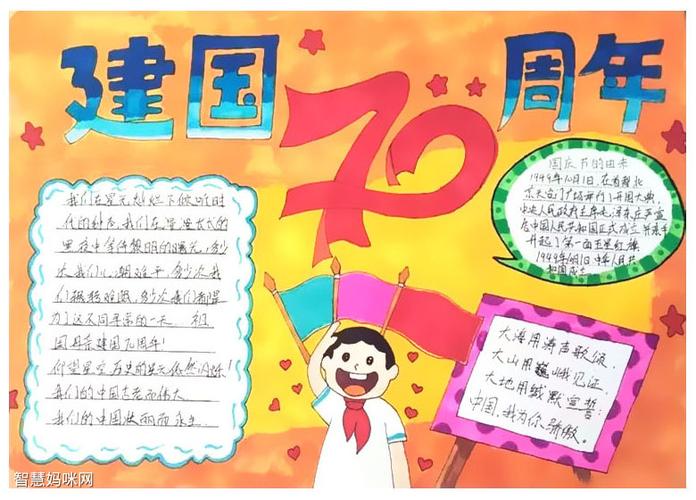 建国70周年
我们在星光灿烂下倾听时
代的钟声,我们在漫漫长长的
黑夜中等待黎明的曙光,多少
次我们心潮难平,多少次我
们
为了这不同寻常的一天。祖
国母亲建国70周年!
仰望星空历史的星光依然闪烁!
我们的中国古老而伟大
我们的中国壮丽而永生
国庆节的由来
1949年10月1日,在首都北
京天安门广场举行了开国大典
中央人民政府主席毛泽东庄严宣
告中国人民共和国正式成立并亲手
升起了第一面五星红旗
1949年10月1日中华人民共
和国成立
大海用涛声歌颂,
大山用巍峨见证,
大地用缄默宣誓:
中国,我为你骄傲。
智慧妈咪网